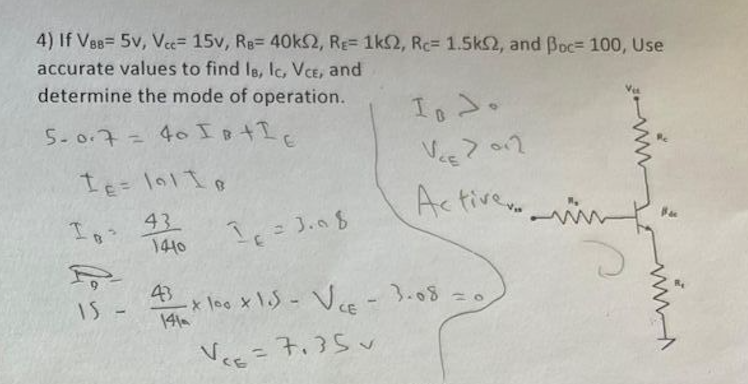 4) If VBB= 5v, Vcc= 15v, RB= 40kΩ, RE= 1kΩ, Rc= 1.5kΩ, and βDC= 100, Use
accurate values to find IB, IC, VCE, and
determine the mode of operation.
5-0.7 = 40 IB + IE
IE = 101 IB
IB = 43/1410 IE = 3.08
15 - 43/1410 x 100 x 1.5 - VCE - 3.08 = 0
VCE = 7.35 v
IB > 0
VCE > 0.2
Active
Vcc
Rc
VBB
RB
βdc
RE